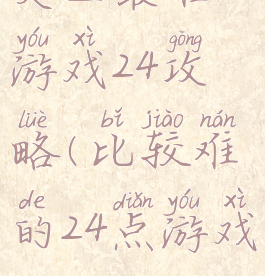 yóu xì gōng
游戏24攻
lüè bǐ jiào nán
略(比较难
de diǎn yóu xì
的24点游戏